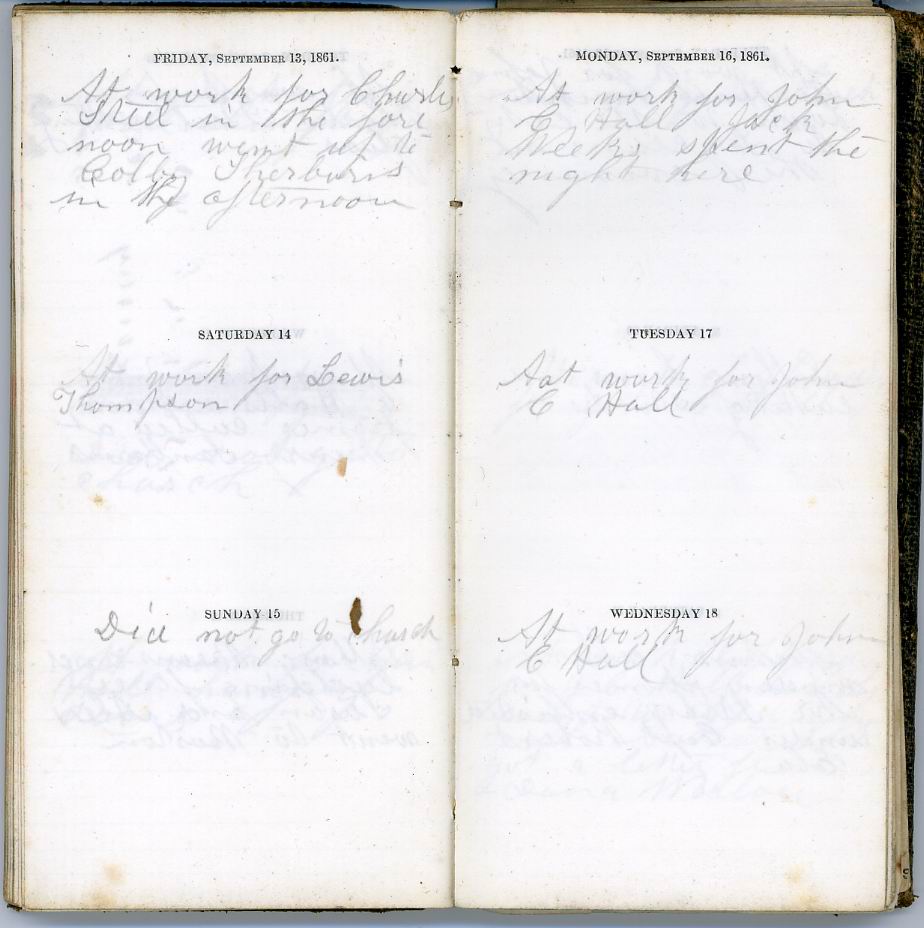 FRIDAY, SEPTEMBER 13, 1861.
At work for Charles
Steel in the fore
noon went up to
Colby Therburs
in the afternoon
SATURDAY 14
At work for Lewis
Thompson
SUNDAY 15
Did not go to Church
MONDAY, SEPTEMBER 16, 1861.
At work for John
E Hall Jack
Weeks spent the
night here
TUESDAY 17
Aat work for John
E Hall
WEDNESDAY 18
At work for John
E Hall